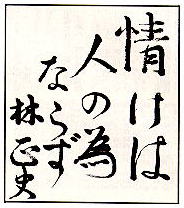 情けは
人の為
ならず
林正史